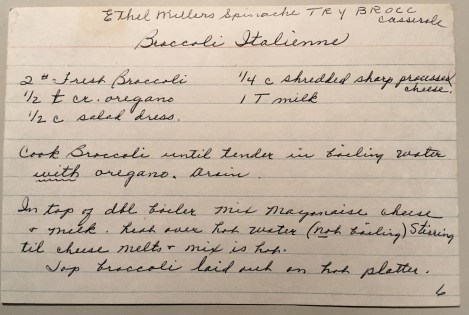 Ethel Millers Spinache TRY BROCC
Casserole
Broccoli Italienne
2 # Fresh Broccoli
1/2 t cr. oregano
1/2 c salad dress.
1/4 c shredded sharp processed cheese.
1 T milk
Cook Broccoli until tender in boiling water
with oregano. Drain.
In top of dbl boiler mix Mayonaise cheese
+ milk. heat over hot water (not boiling) Stirring
til cheese melts + mix is hot.
Top broccoli laid out on hot platter.
6